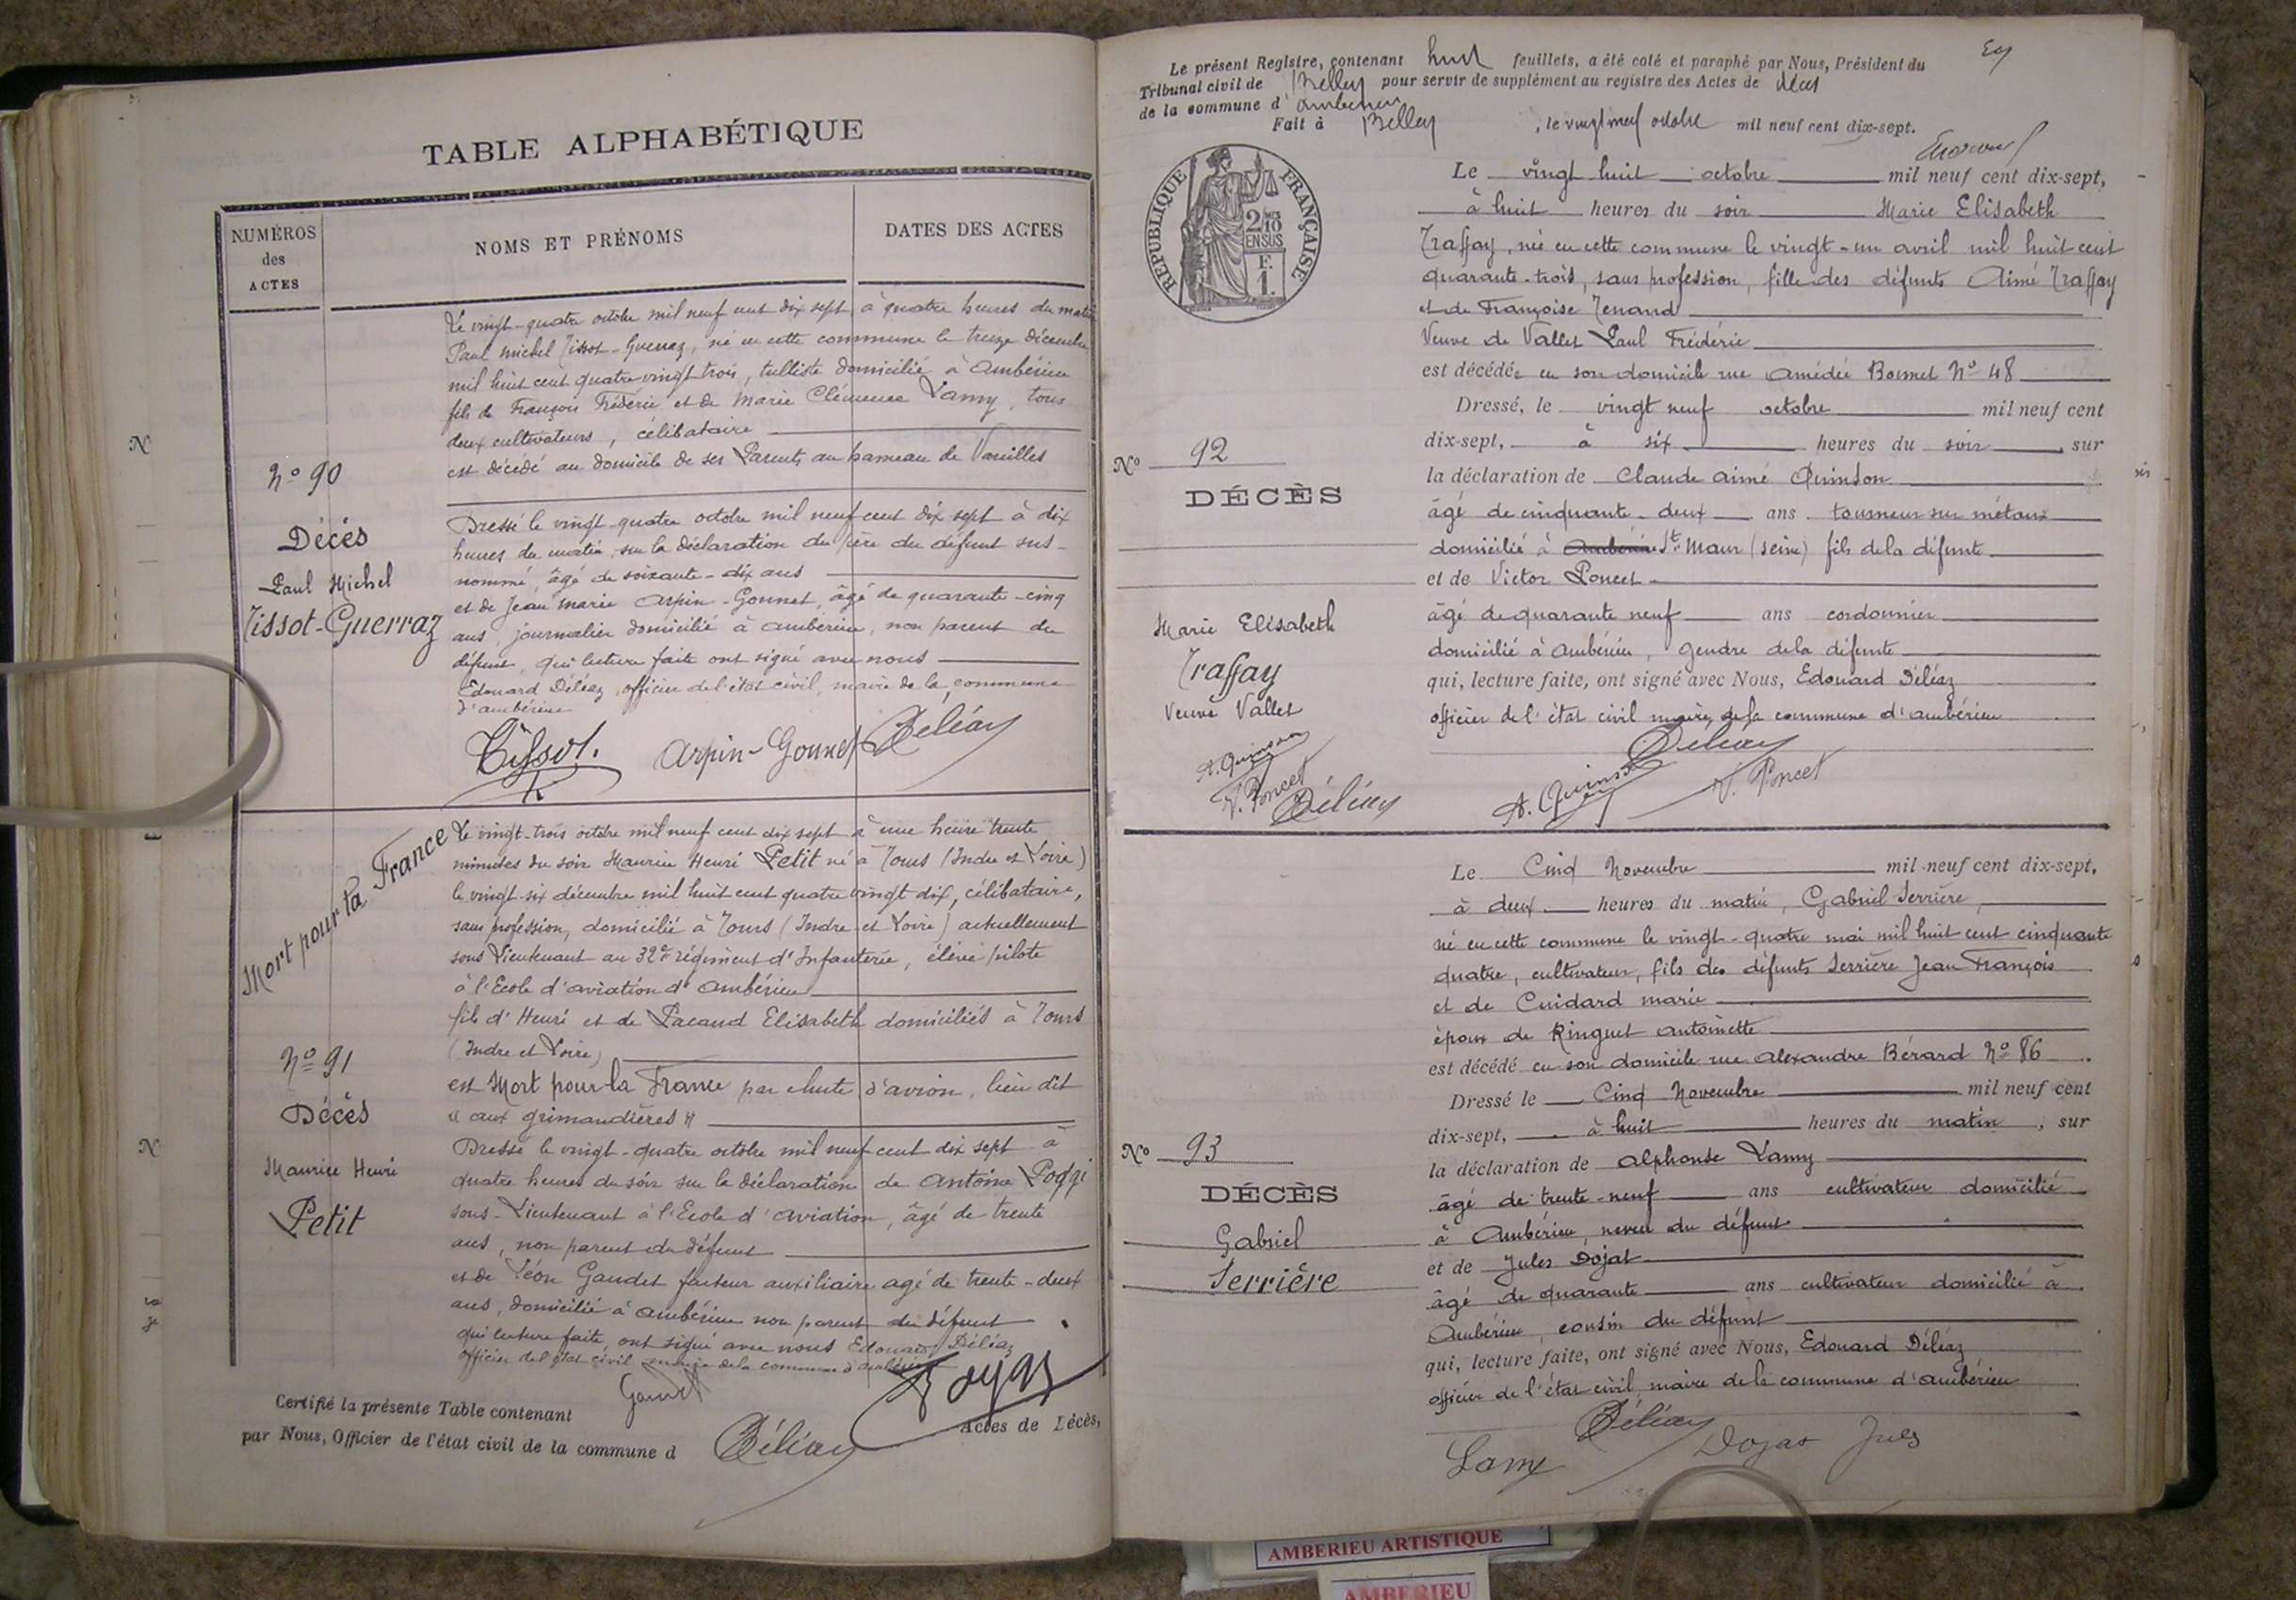 TABLE ALPHABÉTIQUE
NUMÉROS
des
ACTES
NOMS ET PRÉNOMS
DATES DES ACTES
Le vingt-quatre octobre mil neuf cent dix sept à quatre heures du matin
Paul Michel Tissot-Guerraz, né en cette commune le treize décembre
mil huit cent quatre vingt trois, tulliste domicilié à Ambérieu
fils de François Frédéric et de Marie Clémence Lamy, tous
deux cultivateurs, célibataire
est décédé au domicile de ses Parents au hameau de Vareilles
N° 90
Décès
Paul Michel
Tissot-Guerraz
Dressé le vingt-quatre octobre mil neuf cent dix sept à dix
heures du matin, sur la déclaration du père du défunt sus-
nommé, âgé de soixante-dix ans
et de Jean Marie Arpin-Gonnet, âgé de quarante-cinq
ans, journalier domicilié à Ambérieu, non parent du
défunt, qui lecture faite ont signé avec nous
Edouard Déléaz, officier de l'état civil, maire de la commune
d'Ambérieu
Tissot. Arpin-Gonnet Déléaz
Mort pour la France
Le vingt-trois octobre mil neuf cent dix sept à une heure trente
minutes du soir Maurice Henri Petit né à Tours (Indre et Loire)
le vingt-six décembre mil huit cent quatre vingt dix, célibataire,
sans profession, domicilié à Tours (Indre et Loire) actuellement
sous Lieutenant au 32e régiment d'Infanterie, élève pilote
à l'Ecole d'aviation d'Ambérieu
fils d'Henri et de Pacaud Elisabeth domiciliés à Tours
(Indre et Loire)
est Mort pour la France par chute d'avion, lieu dit
« aux grimandières »
N° 91
Décès
Maurice Henri
Petit
Dressé le vingt-quatre octobre mil neuf cent dix sept à
quatre heures du soir sur la déclaration de Antoine Poggi
sous-Lieutenant à l'Ecole d'aviation, âgé de trente
ans, non parent du défunt
et de Léon Gaudet facteur auxiliaire agé de trente-deux
ans, domicilié à Ambérieu non parent du défunt
qui lecture faite, ont signé avec nous Edouard Déléaz
officier de l'état civil maire de la commune d'Ambérieu
Gaudet
Certifié la présente Table contenant
Actes de Décès,
par Nous, Officier de l'état civil de la commune d
Déléaz
Le présent Registre, contenant huit feuillets, a été coté et paraphé par Nous, Président du
Tribunal civil de Belley pour servir de supplément au registre des Actes de décès
de la commune d'Ambérieu
Fait à Belley, le vingt neuf octobre mil neuf cent dix-sept.
RÉPUBLIQUE FRANÇAISE
2/10
EN SUS
F.
1.
Le vingt huit octobre mil neuf cent dix-sept,
à huit heures du soir Marie Elisabeth
Traffay, née en cette commune le vingt-un avril mil huit cent
quarante-trois, sans profession, fille des défunts Aimé Traffay
et de Françoise Tenand
Veuve de Vallet Paul Frédéric
est décédée en son domicile rue Amédée Bonnet N° 48
Dressé, le vingt neuf octobre mil neuf cent
dix-sept, à six heures du soir, sur
N° 92
DÉCÈS
Marie Elisabeth
Traffay
Veuve Vallet
A. Quinson
V. Poncet
Déléaz
la déclaration de Claude Aimé Quinson
âgé de cinquante-deux ans tourneur sur métaux
domicilié à Ambérieu St Maur (Seine) fils de la défunte
et de Victor Poncet
âgé de quarante neuf ans cordonnier
domicilié à Ambérieu, gendre de la défunte
qui, lecture faite, ont signé avec Nous, Edouard Déléaz
officier de l'état civil maire de la commune d'Ambérieu
Déléaz
A. Quinson V. Poncet
Le Cinq Novembre mil neuf cent dix-sept,
à deux heures du matin, Gabriel Serrière,
né en cette commune le vingt-quatre mai mil huit cent cinquante
quatre, cultivateur, fils des défunts Serrière Jean François
et de Cuidard Marie
époux de Ringuet Antoinette
est décédé en son domicile rue Alexandre Bérard N° 86
Dressé le Cinq Novembre mil neuf cent
dix-sept, à huit heures du matin, sur
N° 93
DÉCÈS
Gabriel
Serrière
la déclaration de Alphonse Lamy
âgé de trente-neuf ans cultivateur domicilié
à Ambérieu, neveu du défunt
et de Jules Dojat
âgé de quarante ans cultivateur domicilié à
Ambérieu, cousin du défunt
qui, lecture faite, ont signé avec Nous, Edouard Déléaz
officier de l'état civil, maire de la commune d'Ambérieu
Déléaz
Lamy Dojat Jules
AMBERIEU ARTISTIQUE
AMBERIEU